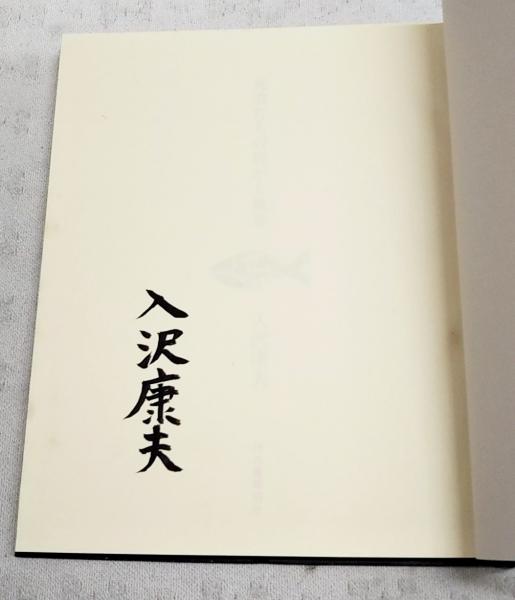 入沢康夫